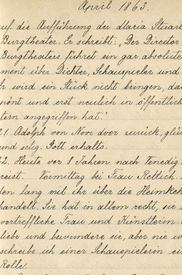 April 1863.
auf die Aufführung der Maria Stuart
Burgtheater. Er schreibt: „Der Director
Burgtheaters führet ein gar absolutes
ment. Dichter, Schauspieler und
er wird ein Stück nicht bringen, da
wönt und erst neulich in öffentlich
tern angegriffen hat.“
21. Adolph von Noor door zurück, glü
und selig. Gott erhalts.
22. Heute vor 8 Jahren nach Venedig
reist. Vormittag bei Frau Rettich
en lang mit ihr über die Heimkeh
handelt. Sie hat in allem recht, sie
vortreffliche Frau und Künstlerin.
liebe und bewundere sie, aber nie w
schreibe ich einer Schauspielerin ei
Rolle.